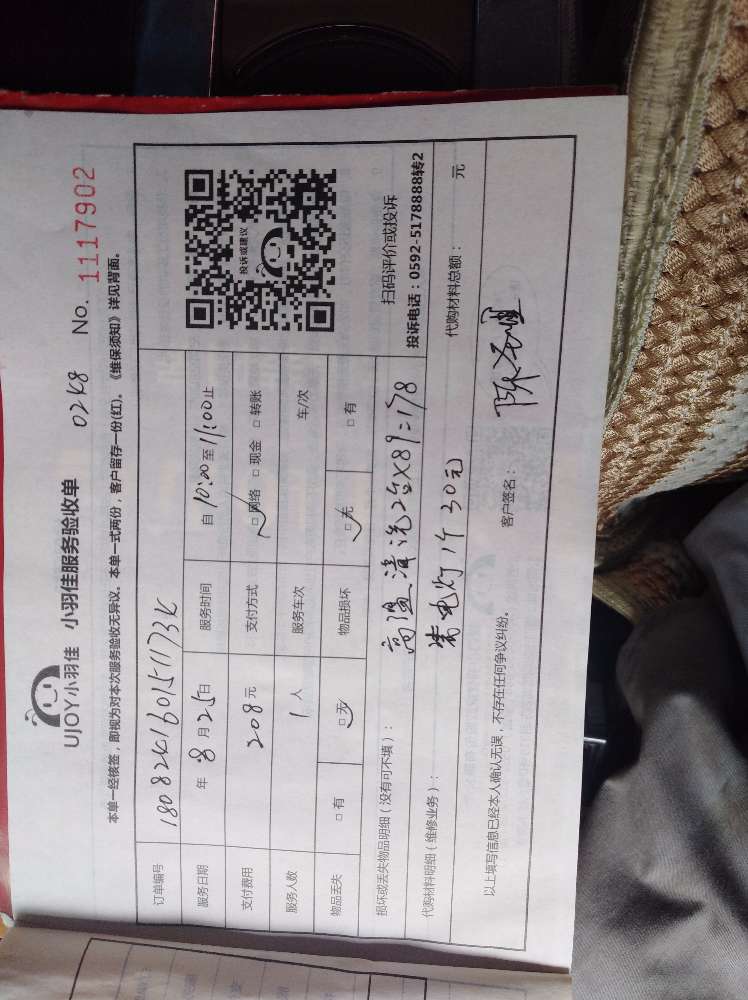 UJOY小羽佳 小羽佳服务验收单 0248 No. 1117902
本单一经核签，即视为对本次服务验收无异议。本单一式两份，客户留存一份(红)。《维保须知》详见背面。
订单编号
服务日期 年 8 月 25 日 服务时间 自 10:00 至 11:00 止
支付费用 208 元 支付方式 □网络 □现金 □转账
服务人数 1 人 服务车次 车/次
物品丢失 □有 □无 物品损坏 □无 □有
投诉或建议
扫码评价或投诉
投诉电话：0592-5178888转2
损坏或丢失物品明细（没有可不填）： 高温清洗2台×89=178
代购材料明细（维修业务）： 装电灯1个30元 代购材料总额： 元
以上填写信息已经本人确认无误，不存在任何争议纠纷。 客户签名：